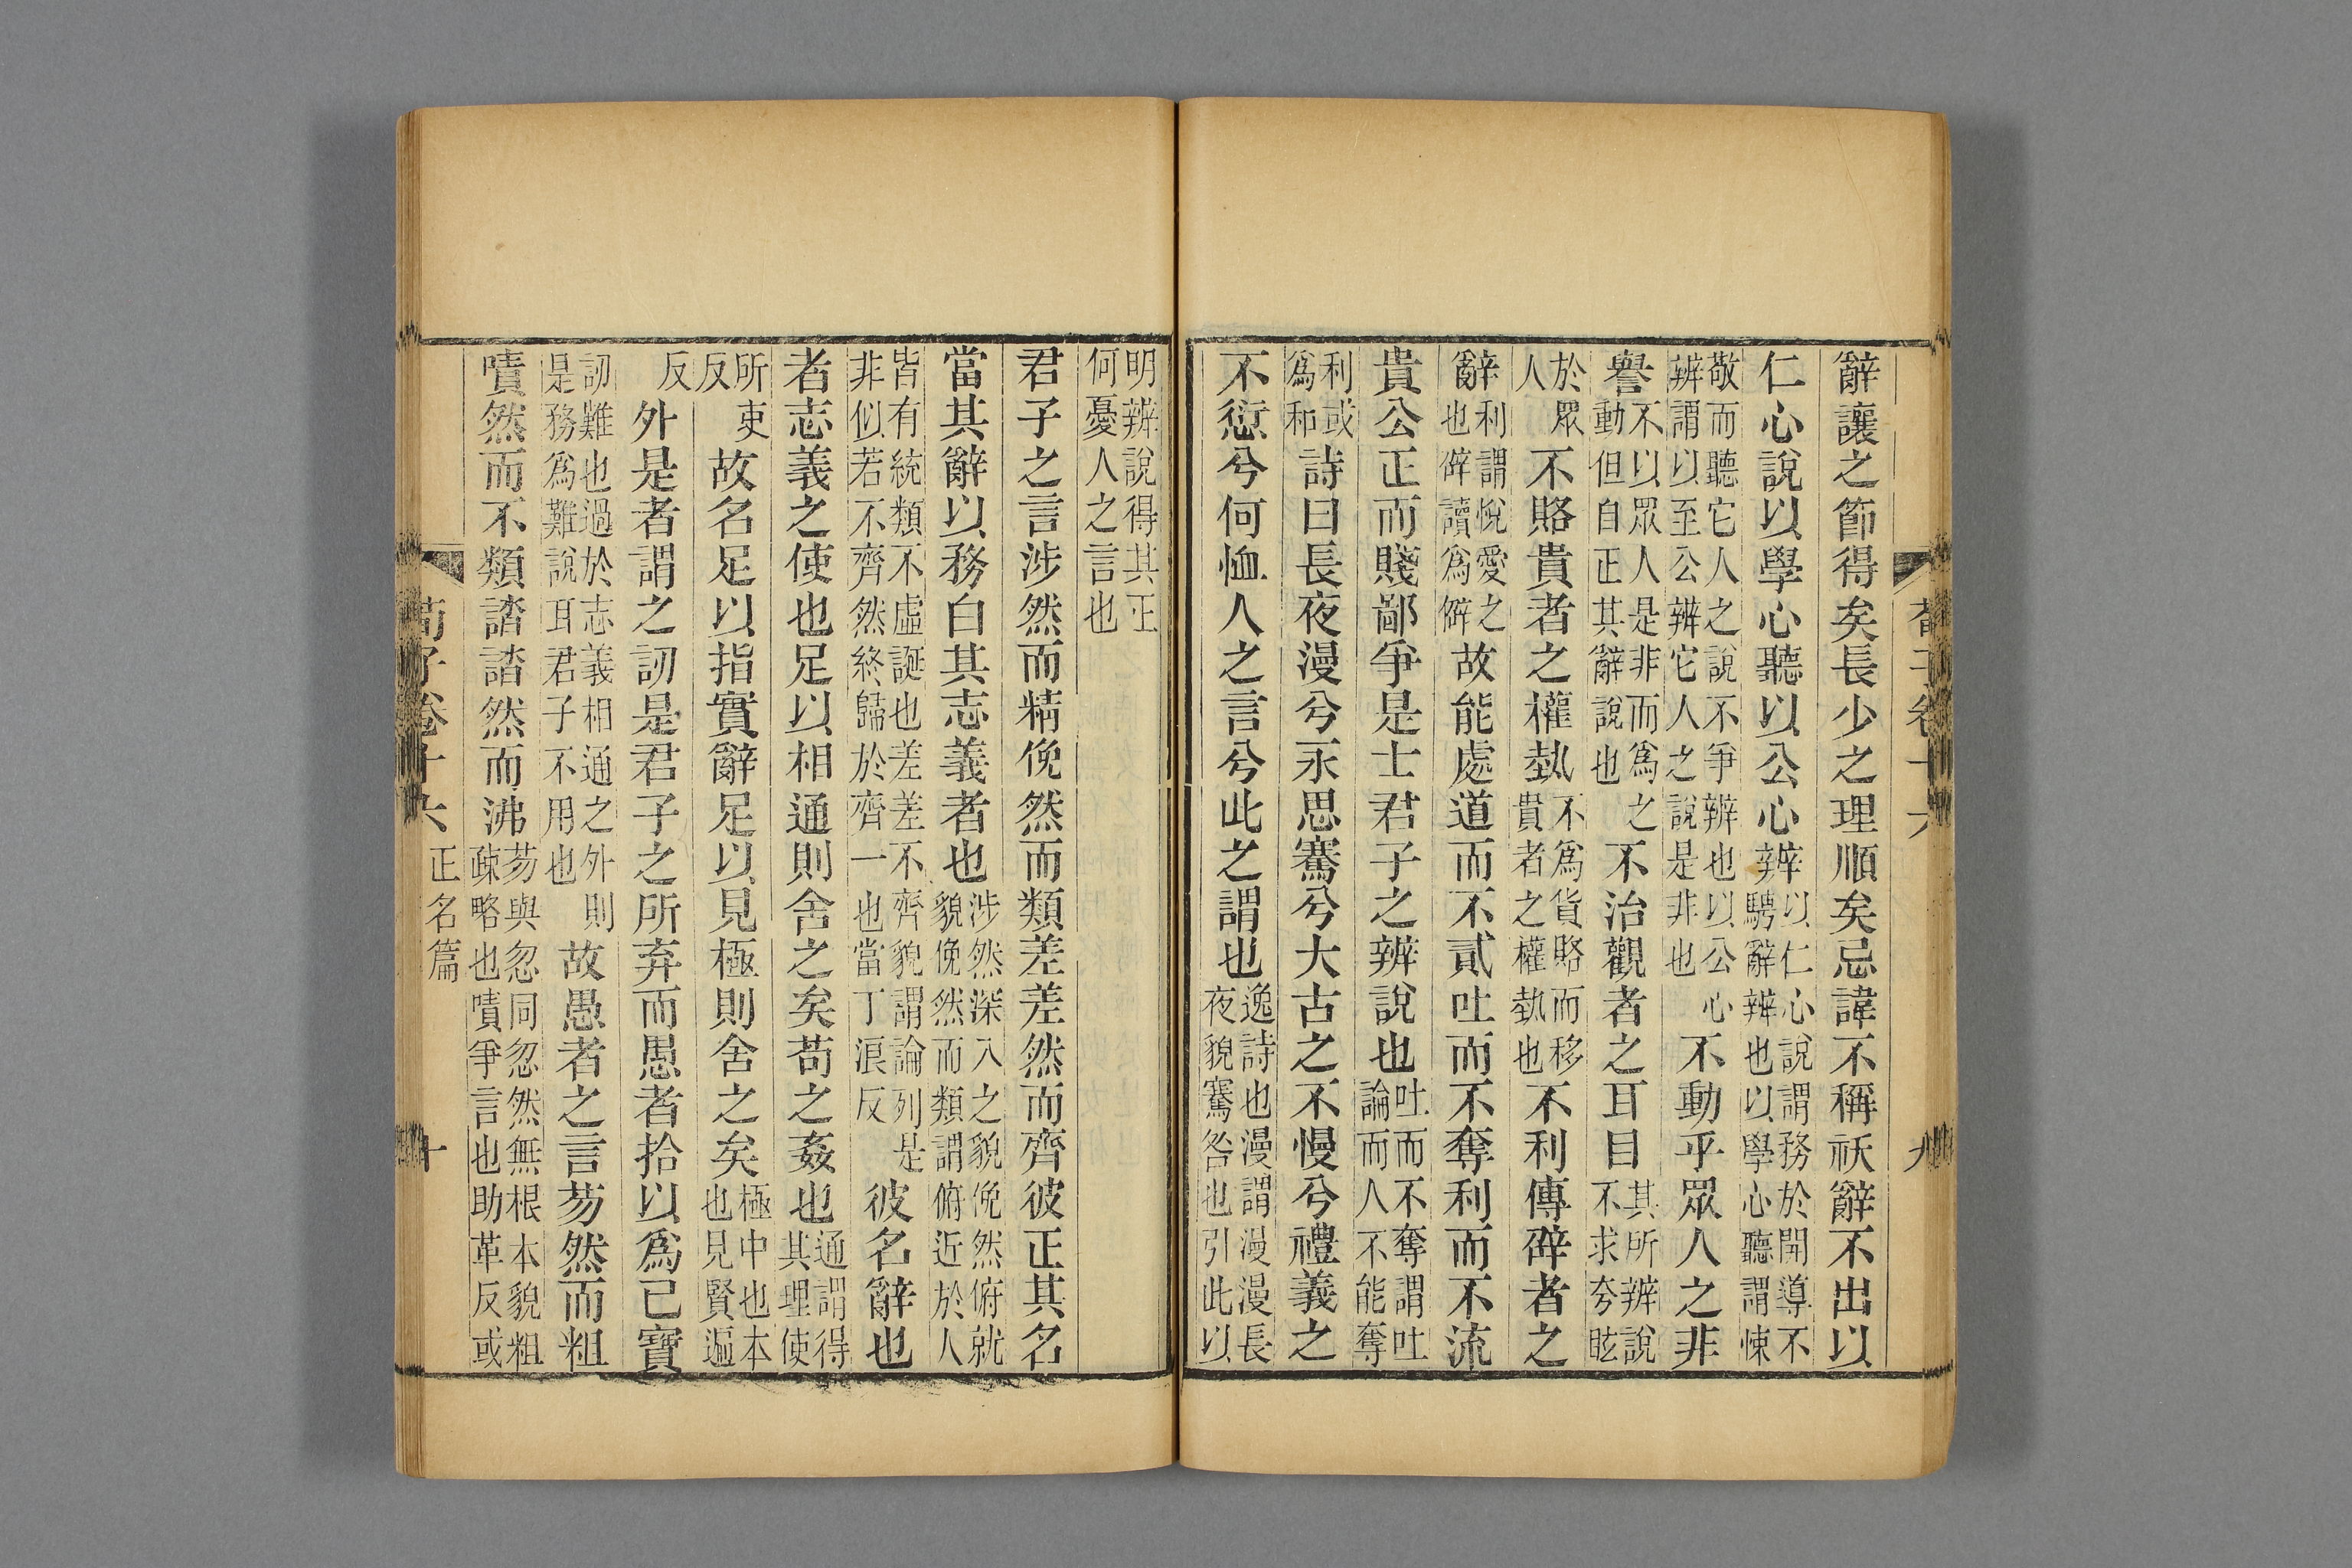 荀子卷十六 九
辭讓之節得矣長少之理順矣忌諱不稱祅辭不出以
仁心說以學心聽以公心辨以仁心說謂務於開導不騁辭辨也以學心聽謂悚
敬而聽它人之說不爭辨也以公心辨謂以至公辨它人之說是非也不動乎眾人之非
譽不以眾人是非而為之動但自正其辭說也不治觀者之耳目其所辨說不求夸眩
於眾人不賂貴者之權埶不為貨賂而移貴者之權埶也不利傳辟者之
辭利謂悅愛之也辟讀為僻故能處道而不貳吐而不奪利而不流
貴公正而賤鄙爭是士君子之辨說也吐而不奪謂吐論而人不能奪
利或為和詩曰長夜漫兮永思騫兮大古之不慢兮禮義之
不愆兮何恤人之言兮此之謂也逸詩也漫謂漫漫長夜貌騫咎也引此以
明辨說得其正何憂人之言也
君子之言涉然而精俛然而類差差然而齊彼正其名
當其辭以務白其志義者也涉然深入之貌俛然俯就貌俛然而類謂俯近於人
皆有統類不虛誕也差差不齊貌謂論列是非似若不齊然終歸於齊一也當丁浪反彼名辭也
者志義之使也足以相通則舍之矣苟之姦也通謂得其理使
所吏反故名足以指實辭足以見極則舍之矣極中也本也見賢遍
反外是者謂之訒是君子之所弃而愚者拾以為己寶
訒難也過於志義相通之外則是務為難說耳君子不用也故愚者之言芴然而粗
嘖然而不類誻誻然而沸芴與忽同忽然無根本貌粗疎略也嘖爭言也助革反或
荀子卷十六 正名篇 十